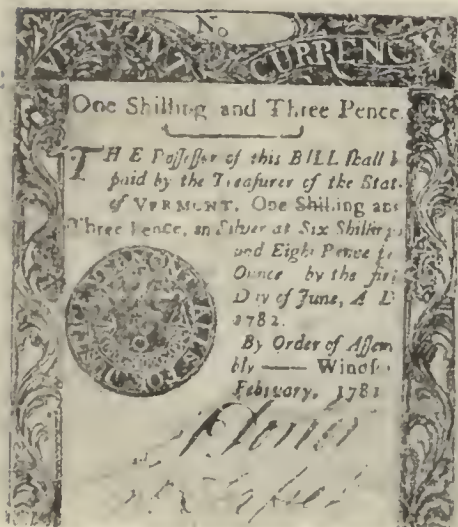 No
VERMONT CURRENCY
One Shilling and Three Pence.
THE Poſſeſſor of this BILL ſhall b
paid by the Treaſurer of the Stat
of VERMONT, One Shilling and
Three Pence, in Silver at Six Shillings
and Eight Pence
Ounce by the firſt
Day of June, A D
1782.
By Order of Aſſem
bly —— Windſ
February, 1781